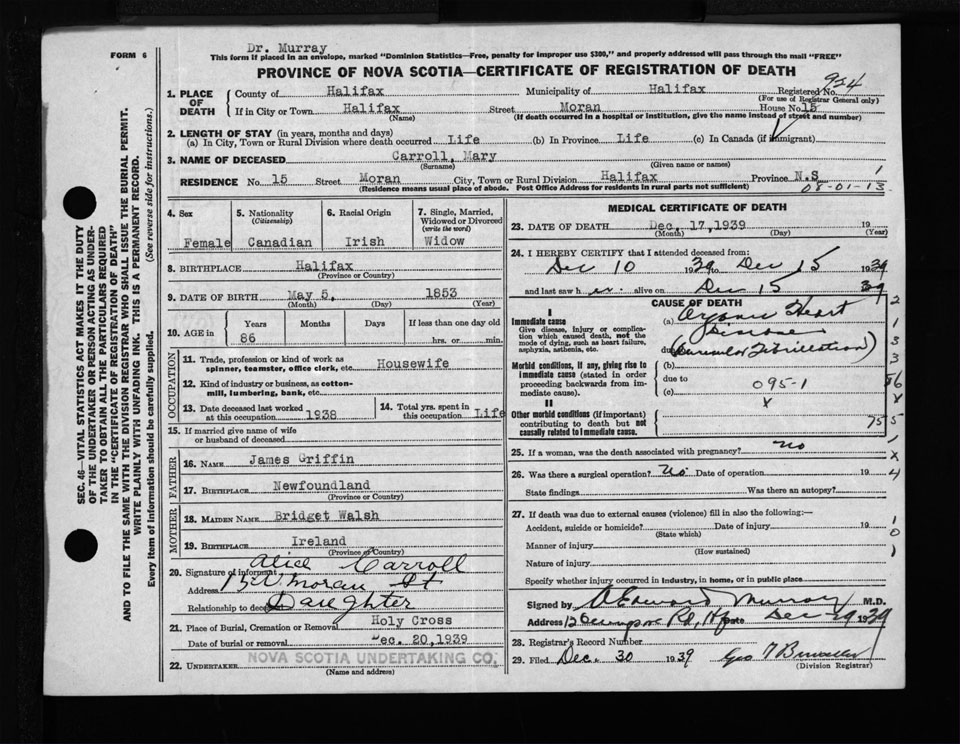 FORM 6
Dr. Murray
This form if placed in an envelope, marked "Dominion Statistics—Free, penalty for improper use $300," and properly addressed will pass through the mail "FREE"
PROVINCE OF NOVA SCOTIA—CERTIFICATE OF REGISTRATION OF DEATH
924
1. PLACE OF DEATH
County of Halifax Municipality of Halifax Registered No.
(For use of Registrar General only)
If in City or Town Halifax Street Moran House No. 15
(Name) (If death occurred in a hospital or institution, give the name instead of street and number)
2. LENGTH OF STAY (in years, months and days)
(a) In City, Town or Rural Division where death occurred Life (b) In Province Life (c) In Canada (if immigrant)
3. NAME OF DECEASED Carroll, Mary
(Surname) (Given name or names)
RESIDENCE No. 15 Street Moran City, Town or Rural Division Halifax Province N.S
(Residence means usual place of abode. Post Office Address for residents in rural parts not sufficient)
08-01-13
1
4. Sex
Female
5. Nationality
(Citizenship)
Canadian
6. Racial Origin
Irish
7. Single, Married, Widowed or Divorced
(write the word)
Widow
8. BIRTHPLACE Halifax
(Province or Country)
9. DATE OF BIRTH May 5, 1853
(Month) (Day) (Year)
10. AGE in
Years Months Days If less than one day old
86 hrs. or min.
OCCUPATION
11. Trade, profession or kind of work as spinner, teamster, office clerk, etc. Housewife
12. Kind of industry or business, as cotton-mill, lumbering, bank, etc.
13. Date deceased last worked at this occupation 1938
14. Total yrs. spent in this occupation Life
15. If married give name of wife or husband of deceased
FATHER
16. NAME James Griffin
17. BIRTHPLACE Newfoundland
(Province or Country)
MOTHER
18. MAIDEN NAME Bridget Walsh
19. BIRTHPLACE Ireland
(Province or Country)
20. Signature of informant Alice Carroll
Address 15 Moran St
Relationship to deceased Daughter
21. Place of Burial, Cremation or Removal Holy Cross
Date of burial or removal Dec. 20, 1939
22. UNDERTAKER NOVA SCOTIA UNDERTAKING CO.
(Name and address)
MEDICAL CERTIFICATE OF DEATH
23. DATE OF DEATH Dec, 17, 1939 19
(Month) (Day) (Year)
24. I HEREBY CERTIFY that I attended deceased from:
Dec 10 1939 to Dec 15 1939
and last saw her alive on Dec 15 39
CAUSE OF DEATH
I
Immediate cause
Give disease, injury or complication which caused death, not the mode of dying, such as heart failure, asphyxia, asthenia, etc.
(a) Organic Heart
Disease
due to (Auricular Fibrillation)
Morbid conditions, if any, giving rise to immediate cause (stated in order proceeding backwards from immediate cause).
(b)
due to
(c) 095-1
x
II
Other morbid conditions (if important) contributing to death but not causally related to immediate cause.
75
25. If a woman, was the death associated with pregnancy? no
26. Was there a surgical operation? No Date of operation 19
State findings Was there an autopsy?
27. If death was due to external causes (violence) fill in also the following:—
Accident, suicide or homicide? Date of injury 19
(State which)
Manner of injury
(How sustained)
Nature of injury
Specify whether injury occurred in industry, in home, or in public place
Signed by Murray M.D.
Address Date Dec 29 1939
28. Registrar's Record Number
29. Filed Dec. 30 1939
(Division Registrar)
SEC. 46—VITAL STATISTICS ACT MAKES IT THE DUTY
OF THE UNDERTAKER OR PERSON ACTING AS UNDER-
TAKER TO OBTAIN ALL THE PARTICULARS REQUIRED
IN THE "CERTIFICATE OF REGISTRATION OF DEATH"
AND TO FILE THE SAME WITH THE DIVISION REGISTRAR WHO SHALL ISSUE THE BURIAL PERMIT.
WRITE PLAINLY WITH UNFADING INK. THIS IS A PERMANENT RECORD.
Every item of information should be carefully supplied. (See reverse side for instructions.)